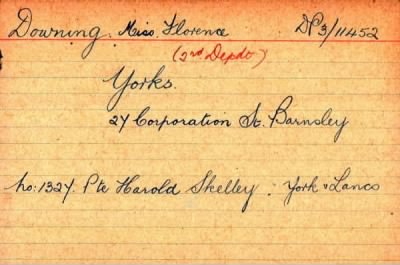 Downing. Miss. Florence DP3/11452
(2nd Depdo)
Yorks.
27 Corporation St. Barnsley
No: 1327. Pte Harold Skelley: York & Lancs